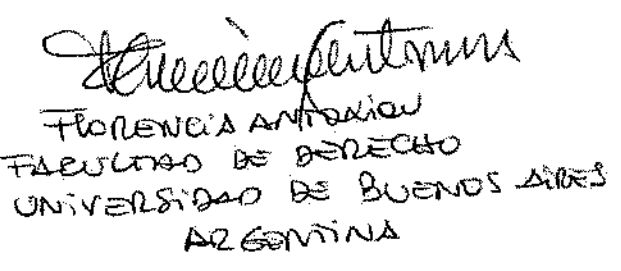 FLORENCIA
FACULTAD DE DERECHO
UNIVERSIDAD DE BUENOS AIRES
ARGENTINA